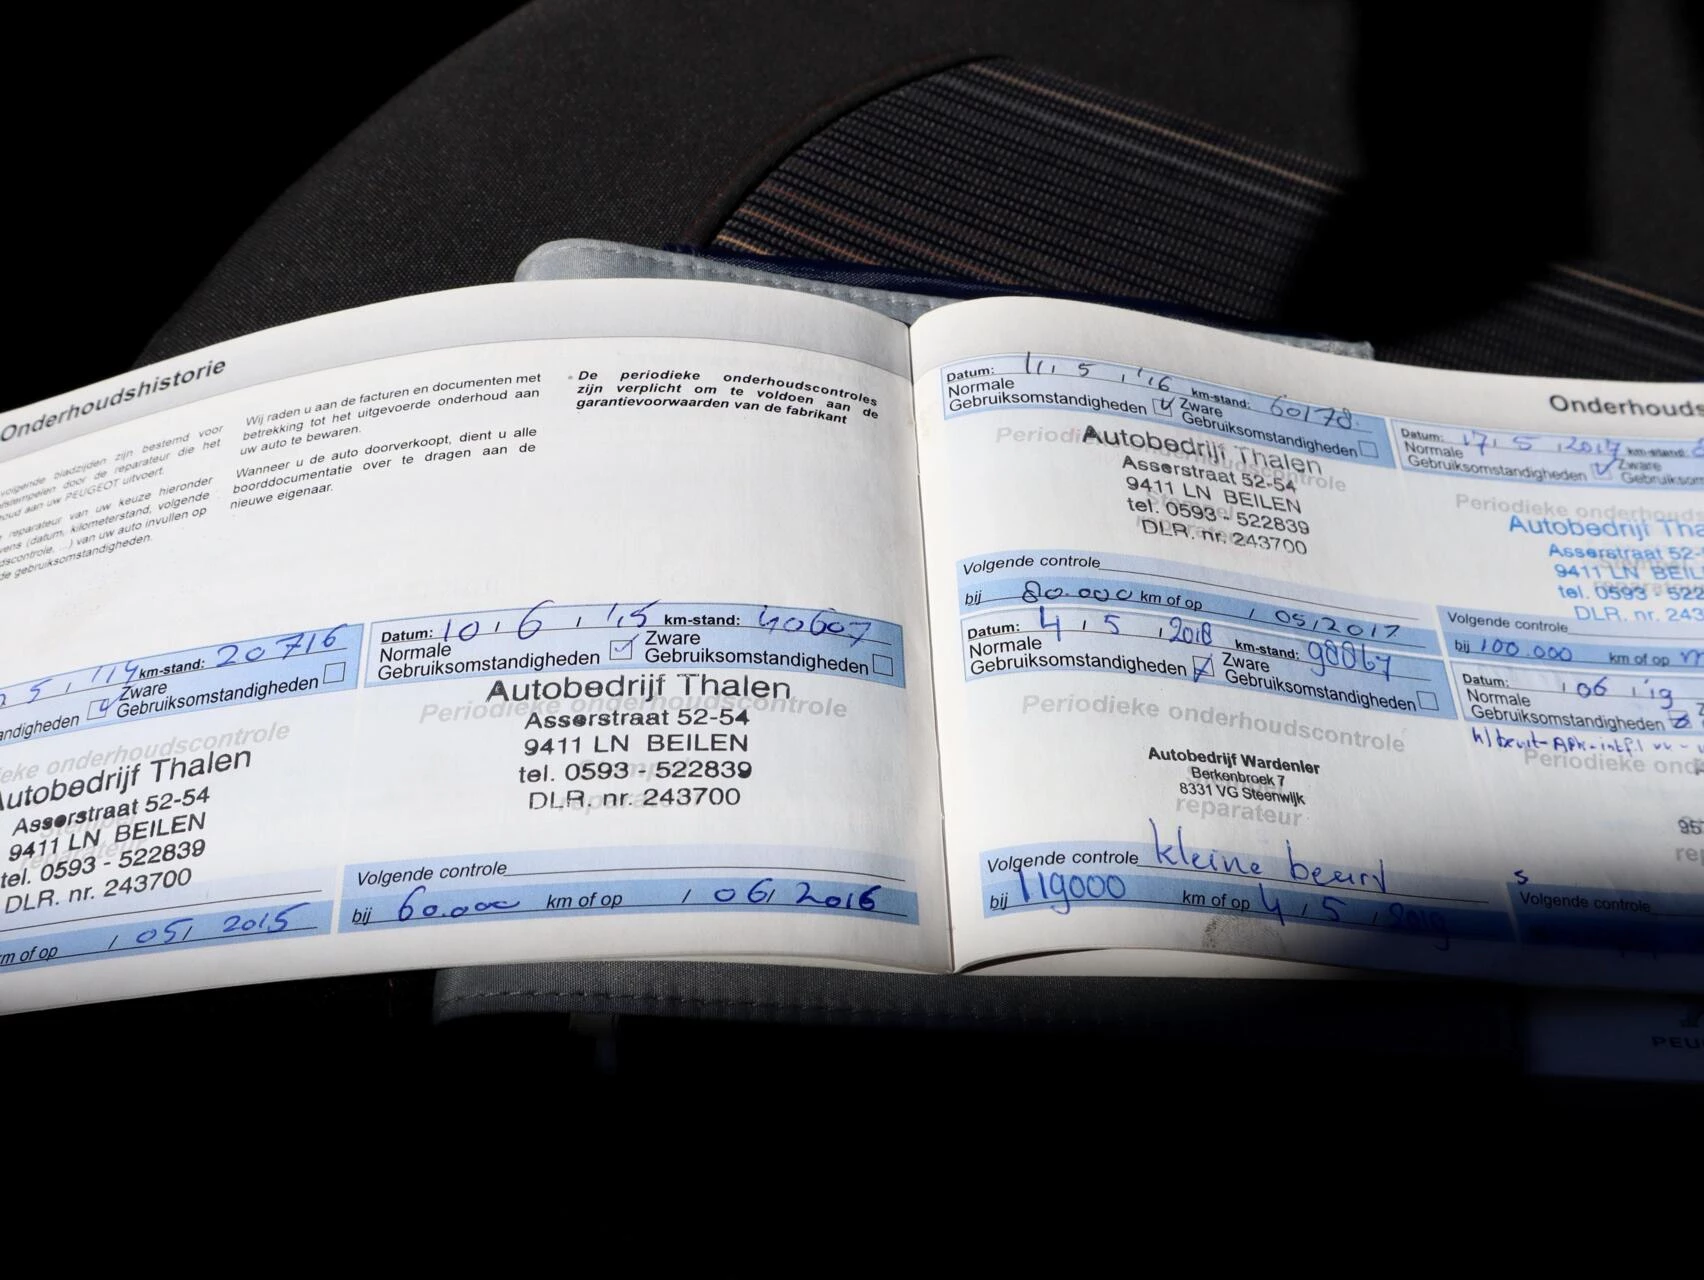 Onderhoudshistorie
volgende bladzijden zijn bestemd voor
door de reparateur die het
aan uw PEUGEOT uitvoert.
reparateur van uw keuze hieronder
(datum, kilometerstand, volgende
...) van uw auto invullen op
de gebruiksomstandigheden.
Wij raden u aan de facturen en documenten met
betrekking tot het uitgevoerde onderhoud aan
uw auto te bewaren.
Wanneer u de auto doorverkoopt, dient u alle
boorddocumentatie over te dragen aan de
nieuwe eigenaar.
De periodieke onderhoudscontroles
zijn verplicht om te voldoen aan de
garantievoorwaarden van de fabrikant
5 / '14 km-stand: 20716
Zware
Gebruiksomstandigheden
Autobedrijf Thalen
Asserstraat 52-54
9411 LN BEILEN
tel. 0593 - 522839
DLR. nr. 243700
km of op / 05 / 2015
Datum: 10 / 6 / '15 km-stand: 40607
Normale
Gebruiksomstandigheden
Zware
Gebruiksomstandigheden
Periodieke onderhoudscontrole
Autobedrijf Thalen
Asserstraat 52-54
9411 LN BEILEN
tel. 0593 - 522839
DLR. nr. 243700
Volgende controle
bij 60.000 km of op / 06 / 2016
Datum: 11 / 5 / '16 km-stand: 60178
Normale
Gebruiksomstandigheden
Zware
Gebruiksomstandigheden
Autobedrijf Thalen
Asserstraat 52-54
9411 LN BEILEN
tel. 0593 - 522839
DLR. nr. 243700
Volgende controle
bij 80.000 km of op / 05 / 2017
Datum: 4 / 5 / 2018 km-stand: 98867
Normale
Gebruiksomstandigheden
Zware
Gebruiksomstandigheden
Periodieke onderhoudscontrole
Autobedrijf Wardenier
Berkenbroek 7
8331 VG Steenwijk
reparateur
Volgende controle kleine beurt
bij 119000 km of op 4 / 5 / 2019
Datum: 17 / 5 / 2017 km-stand:
Normale
Gebruiksomstandigheden
Zware
Periodieke
Autobedrijf
Asserstraat 52-
9411 LN
tel. 0593 - 522
DLR. nr. 243
Volgende controle
bij 100.000 km of op
Datum: / 06 / '19
Normale
Gebruiksomstandigheden
Periodieke
Volgende controle